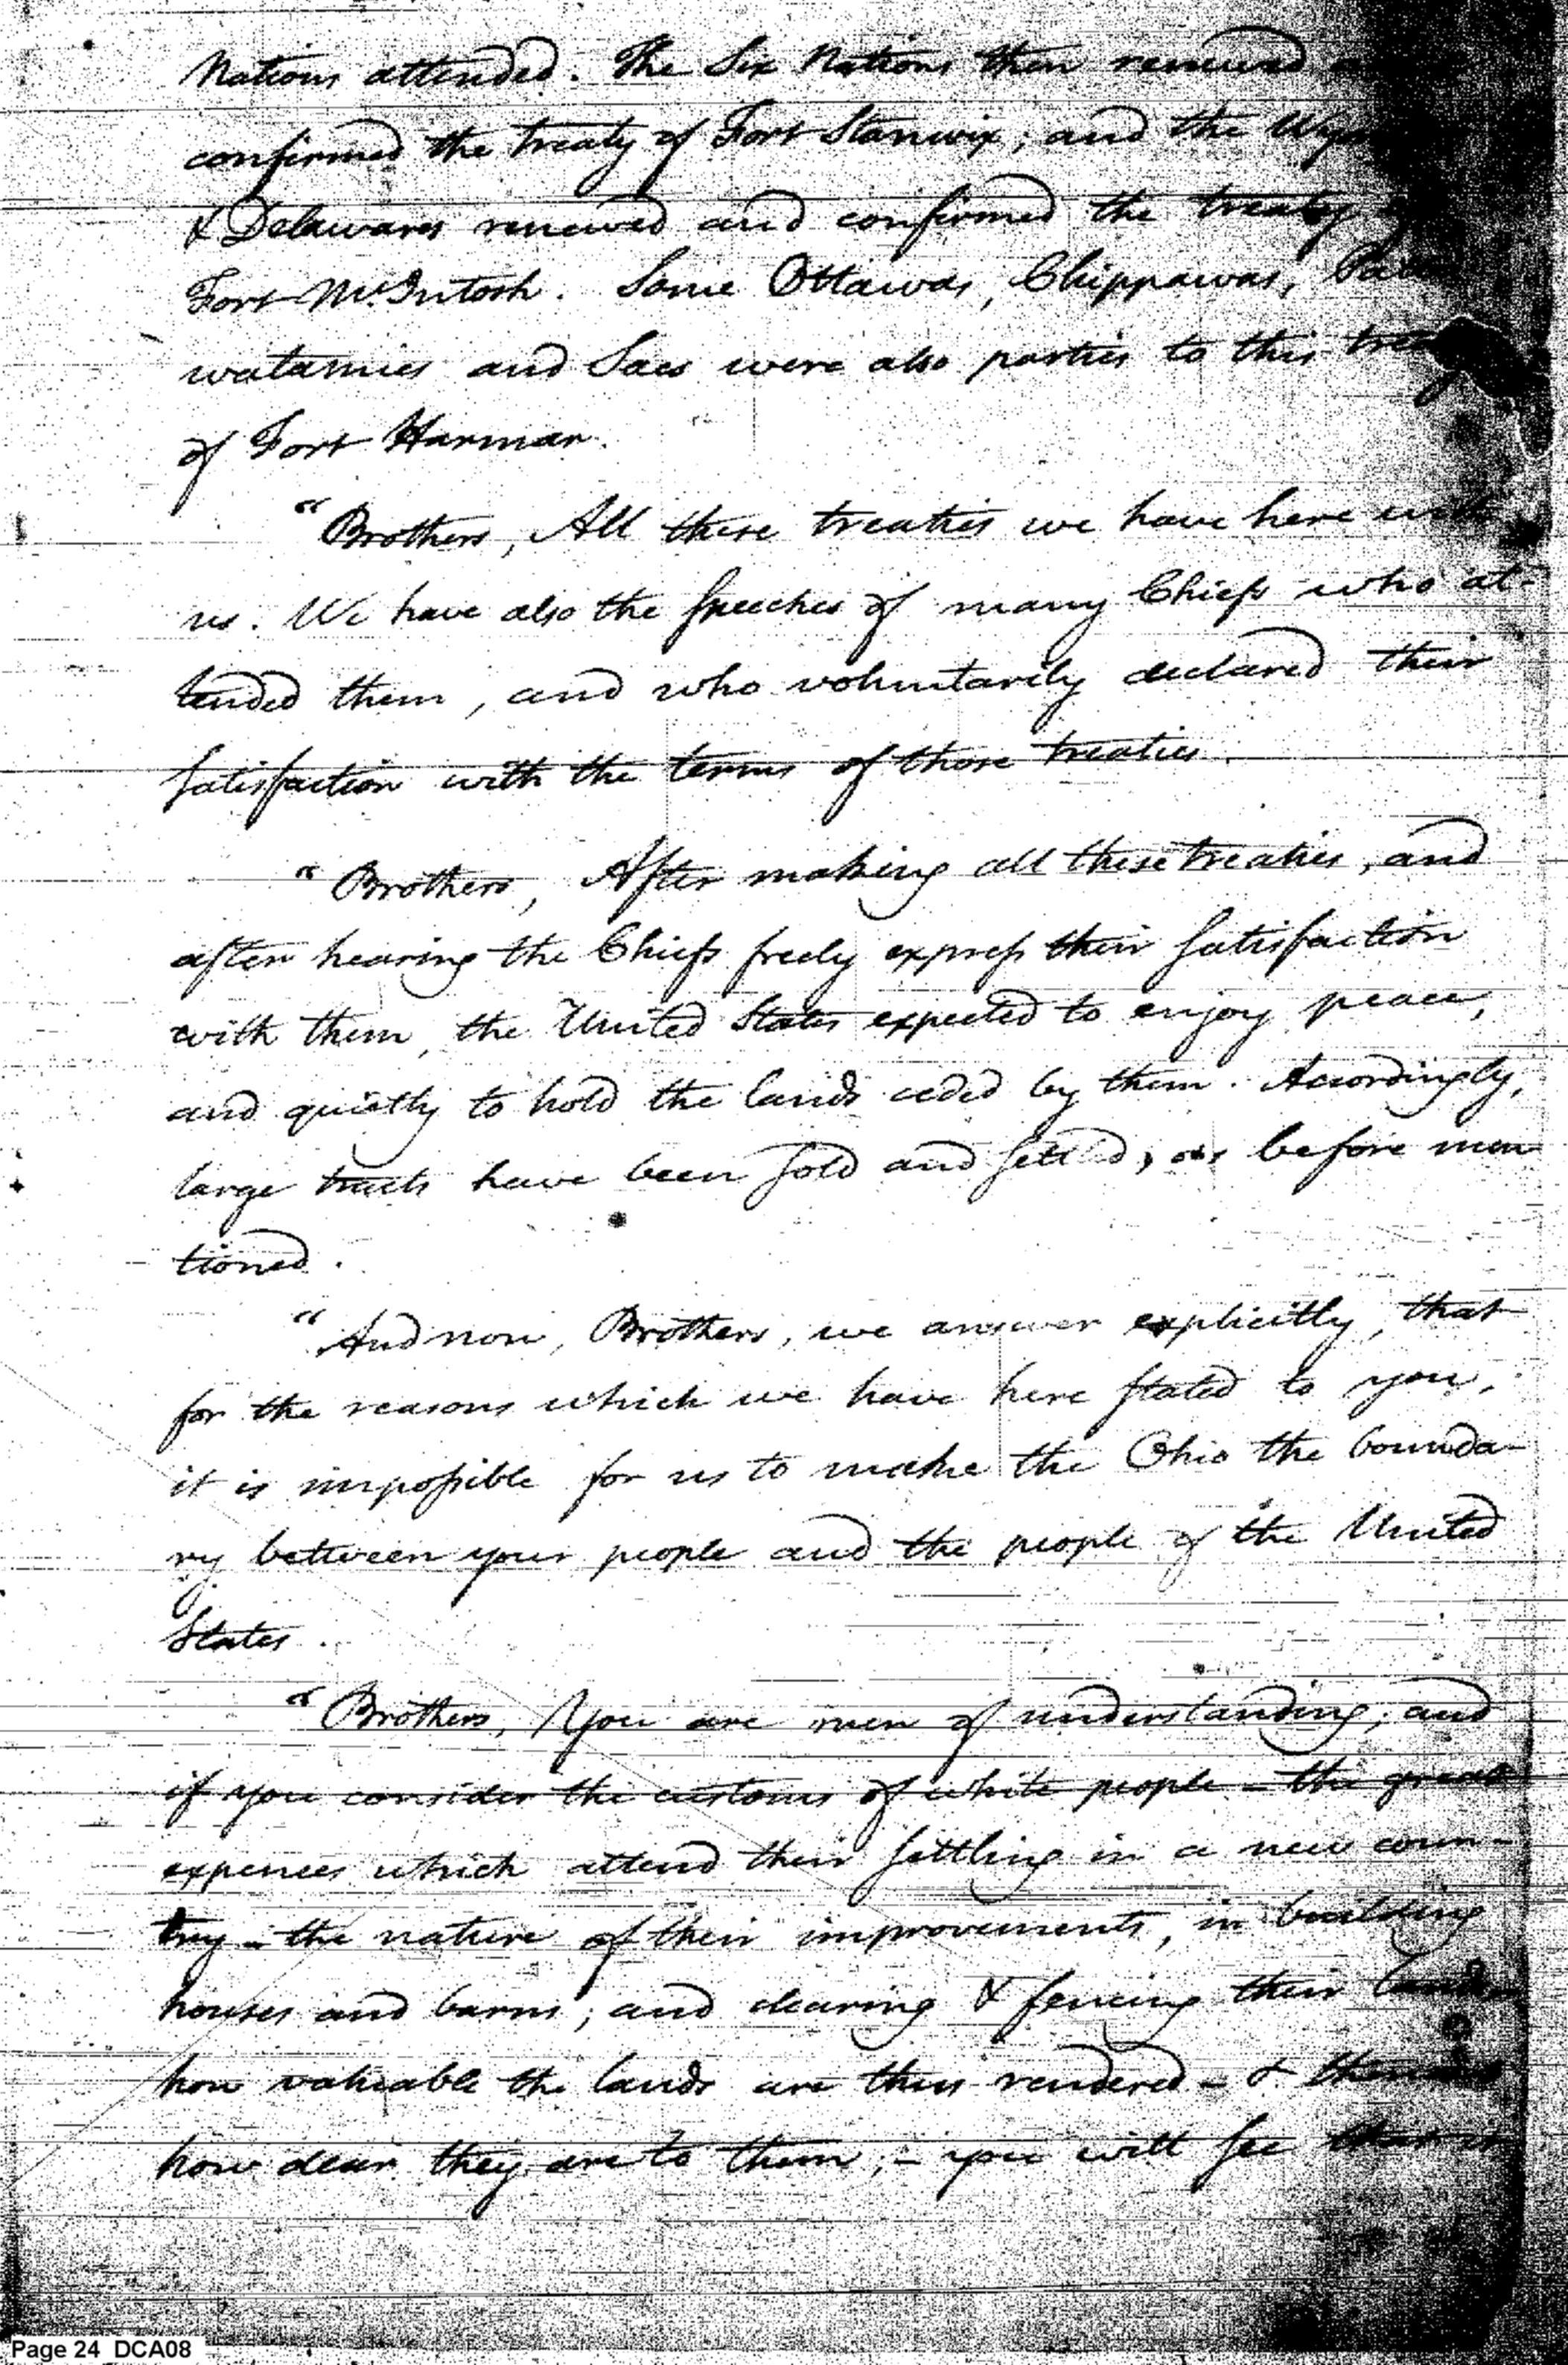 Nations attended. The Six Nations then renewed
confirmed the treaty of Fort Stanwix; and the
& Delawares renewed and confirmed the treaty
Fort McIntosh. Some Ottawas, Chippawas,
watamies and Sacs were also parties to this
of Fort Harmar.
"Brothers, All these treaties we have here with
us. We have also the speeches of many Chiefs who at-
tended them, and who voluntarily declared their
satisfaction with the terms of those treaties.
"Brothers, After making all these treaties, and
after hearing the Chiefs freely express their satisfaction
with them, the United States expected to enjoy peace,
and quietly to hold the lands ceded by them. Accordingly,
large tracts have been sold and settled, as before men
tioned.
"And now, Brothers, we answer explicitly, that
for the reasons which we have here stated to you,
it is impossible for us to make the Ohio the bounda-
ry between your people and the people of the United
States.
"Brothers, You are men of understanding; and
if you consider the customs of white people - the great
expences which attend their settling in a new coun-
try - the nature of their improvements, in building
houses and barns; and clearing & fencing their lands
how valuable the lands are thus rendered - &
how dear they are to them; - you will see that
Page 24 DCA08